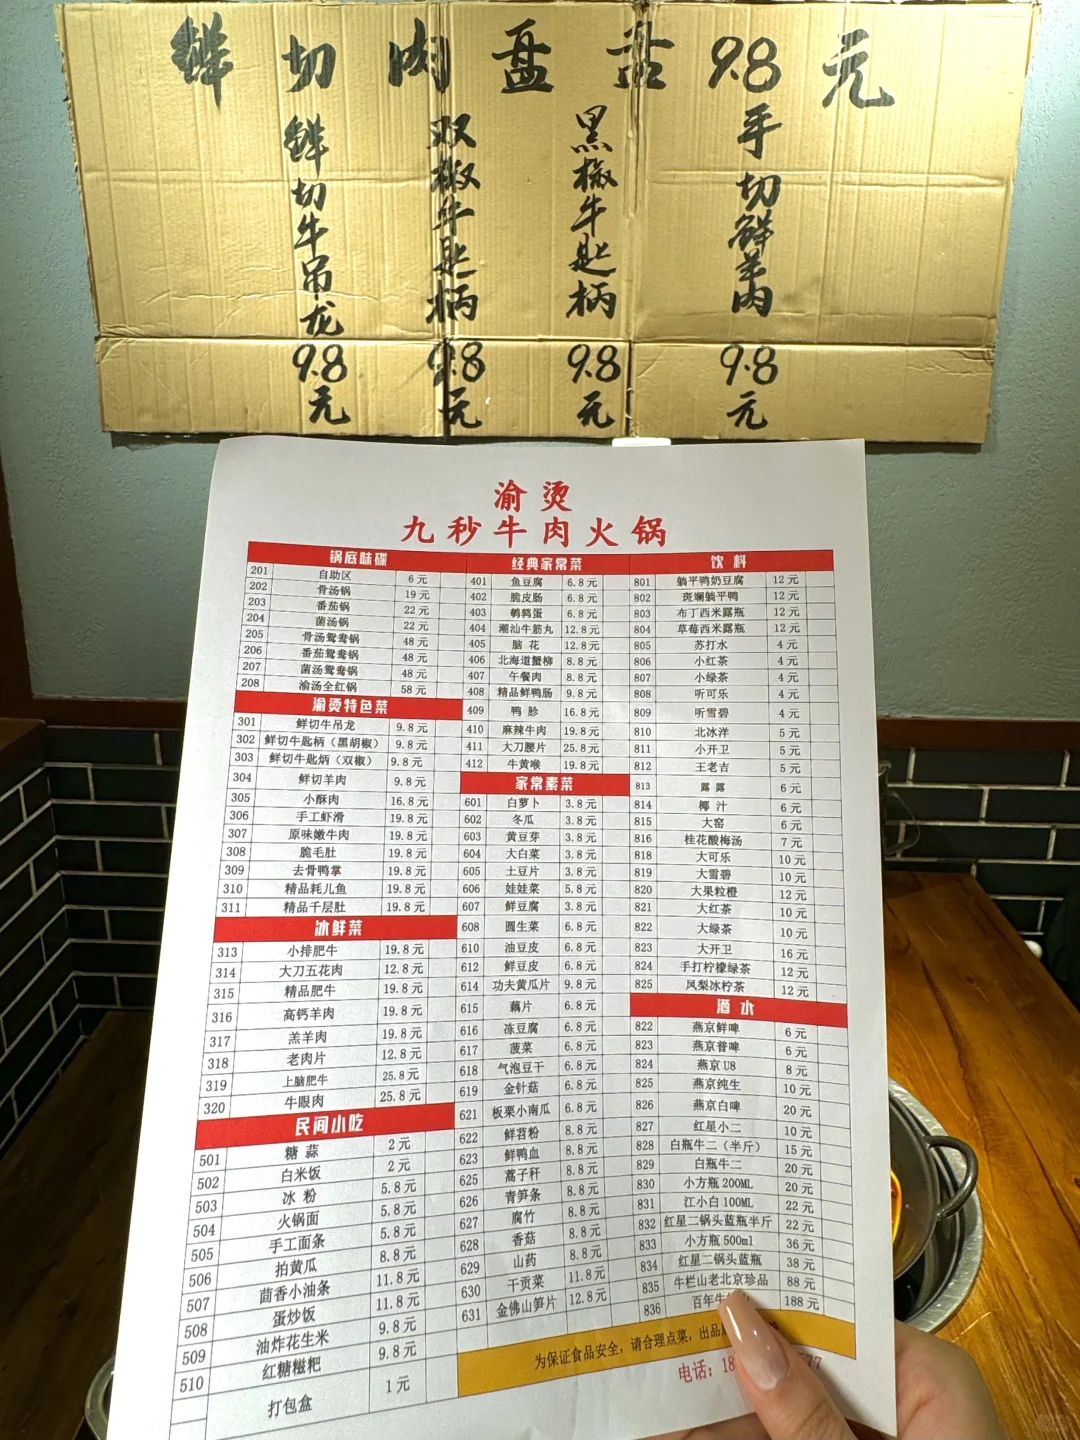 鲜切肉盘盘9.8元
鲜切牛吊龙9.8元
双椒牛匙柄9.8元
黑椒牛匙柄9.8元
手切鲜羊肉9.8元
渝烫
九秒牛肉火锅
锅底味碟
201 自助区 6元
202 骨汤锅 19元
203 番茄锅 22元
204 菌汤锅 22元
205 骨汤鸳鸯锅 48元
206 番茄鸳鸯锅 48元
207 菌汤鸳鸯锅 48元
208 渝汤全红锅 58元
渝烫特色菜
301 鲜切牛吊龙 9.8元
302 鲜切牛匙柄（黑胡椒） 9.8元
303 鲜切牛匙炳（双椒） 9.8元
304 鲜切羊肉 9.8元
305 小酥肉 16.8元
306 手工虾滑 19.8元
307 原味嫩牛肉 19.8元
308 脆毛肚 19.8元
309 去骨鸭掌 19.8元
310 精品耗儿鱼 19.8元
311 精品千层肚 19.8元
冰鲜菜
313 小排肥牛 19.8元
314 大刀五花肉 12.8元
315 精品肥牛 19.8元
316 高钙羊肉 19.8元
317 羔羊肉 19.8元
318 老肉片 12.8元
319 上脑肥牛 25.8元
320 牛眼肉 25.8元
民间小吃
501 糖蒜 2元
502 白米饭 2元
503 冰粉 5.8元
504 火锅面 5.8元
505 手工面条 5.8元
506 拍黄瓜 8.8元
507 茴香小油条 11.8元
508 蛋炒饭 11.8元
509 油炸花生米 9.8元
510 红糖糍粑 9.8元
打包盒 1元
经典家常菜
401 鱼豆腐 6.8元
402 脆皮肠 6.8元
403 鹌鹑蛋 6.8元
404 潮汕牛筋丸 12.8元
405 脑花 12.8元
406 北海道蟹柳 8.8元
407 午餐肉 8.8元
408 精品鲜鸭肠 9.8元
409 鸭胗 16.8元
410 麻辣牛肉 19.8元
411 大刀腰片 25.8元
412 牛黄喉 19.8元
家常素菜
601 白萝卜 3.8元
602 冬瓜 3.8元
603 黄豆芽 3.8元
604 大白菜 3.8元
605 土豆片 3.8元
606 娃娃菜 5.8元
607 鲜豆腐 3.8元
608 圆生菜 6.8元
610 油豆皮 6.8元
612 鲜豆皮 6.8元
614 功夫黄瓜片 9.8元
615 藕片 6.8元
616 冻豆腐 6.8元
617 菠菜 6.8元
618 气泡豆干 6.8元
619 金针菇 6.8元
621 板栗小南瓜 6.8元
622 鲜苕粉 8.8元
623 鲜鸭血 8.8元
625 蒿子秆 8.8元
626 青笋条 8.8元
627 腐竹 8.8元
628 香菇 8.8元
629 山药 8.8元
630 干贡菜 11.8元
631 金佛山笋片 12.8元
饮料
801 躺平鸭奶豆腐 12元
802 斑斓躺平鸭 12元
803 布丁西米露瓶 12元
804 草莓西米露瓶 12元
805 苏打水 4元
806 小红茶 4元
807 小绿茶 4元
808 听可乐 4元
809 听雪碧 4元
810 北冰洋 5元
811 小开卫 5元
812 王老吉 5元
813 露露 6元
814 椰汁 6元
815 大窑 6元
816 桂花酸梅汤 7元
818 大可乐 10元
819 大雪碧 10元
820 大果粒橙 12元
821 大红茶 10元
822 大绿茶 10元
823 大开卫 16元
824 手打柠檬绿茶 12元
825 凤梨冰柠茶 12元
酒水
822 燕京鲜啤 6元
823 燕京普啤 6元
824 燕京U8 8元
825 燕京纯生 10元
826 燕京白啤 20元
827 红星小二 10元
828 白瓶牛二（半斤） 15元
829 白瓶牛二 20元
830 小方瓶200ML 20元
831 江小白100ML 22元
832 红星二锅头蓝瓶半斤 22元
833 小方瓶500ml 36元
834 红星二锅头蓝瓶 38元
835 牛栏山老北京珍品 88元
836 百年牛 188元
为保证食品安全，请合理点菜，出品
电话：18 577